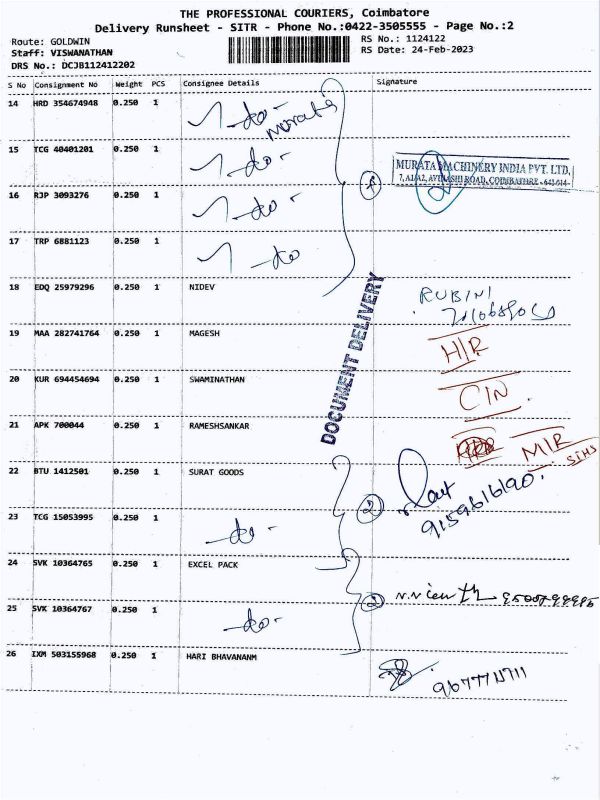 THE PROFESSIONAL COURIERS, Coimbatore
Delivery Runsheet - SITR - Phone No.:0422-3505555 - Page No.:2
Route: GOLDWIN
RS No.: 1124122
Staff: VISWANATHAN
RS Date: 24-Feb-2023
DRS No.: DCJB112412202
S No Consignment No Weight PCS Consignee Details Signature
14 HRD 354674948 0.250 1 -do- Murata
15 TCG 40401201 0.250 1 -do-
MURATA MACHINERY INDIA PVT. LTD,
16 RJP 3093276 0.250 1 -do-
17 TRP 6881123 0.250 1 -do
18 EDQ 25979296 0.250 1 NIDEV RUBINI
DOCUMENT DELIVERY
19 MAA 282741764 0.250 1 MAGESH H/R
20 KUR 694454694 0.250 1 SWAMINATHAN C/N
21 APK 700044 0.250 1 RAMESHSANKAR M/R
22 BTU 1412501 0.250 1 SURAT GOODS 2
9159616190.
23 TCG 15053995 0.250 1 -do-
24 SVK 10364765 0.250 1 EXCEL PACK
25 SVK 10364767 0.250 1 -do- 2
26 IXM 503155968 0.250 1 HARI BHAVANANM